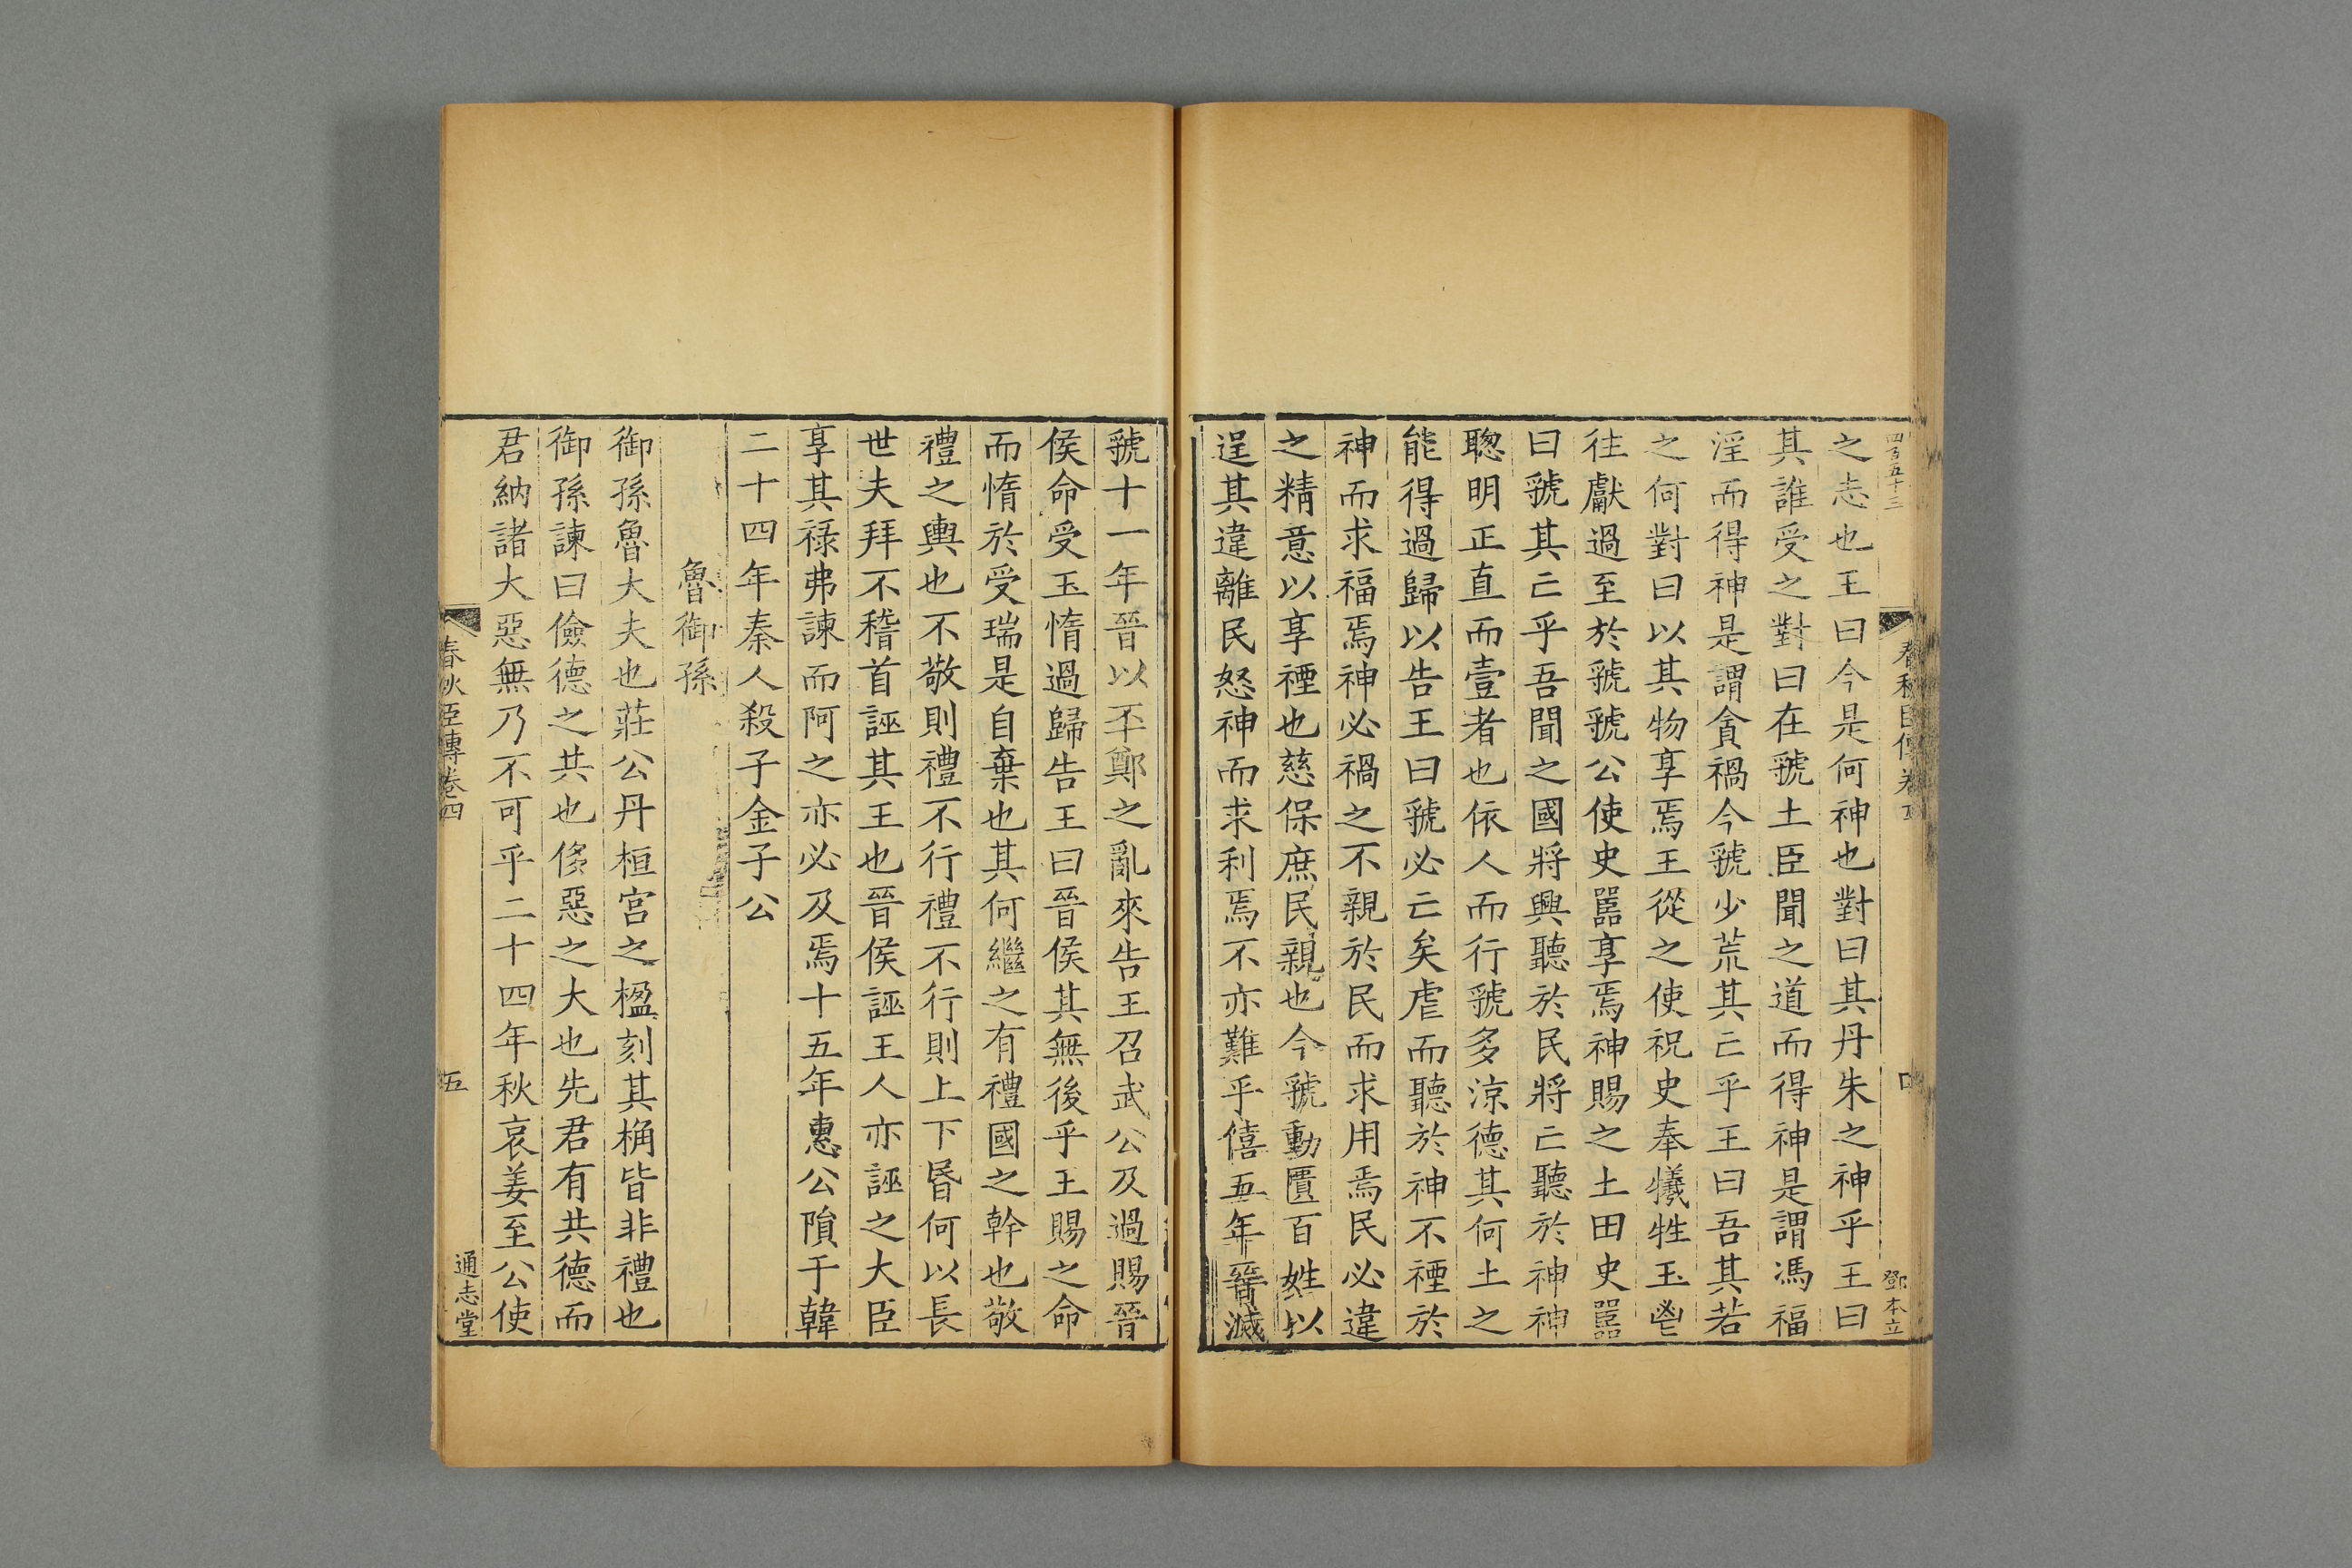 四百五十三
鄧本立
之志也王曰今是何神也對曰其丹朱之神乎王曰
其誰受之對曰在虢土臣聞之道而得神是謂馮福
淫而得神是謂貪禍今虢少荒其亾乎王曰吾其若
之何對曰以其物享焉王從之使祝史奉犧牲玉鬯
往獻過至於虢虢公使史嚚享焉神賜之土田史嚚
曰虢其亾乎吾聞之國將興聽於民將亾聽於神神
聰明正直而壹者也依人而行虢多涼德其何土之
能得過歸以告王曰虢必亾矣虐而聽於神不禋於
神而求福焉神必禍之不親於民而求用焉民必違
之精意以享禋也慈保庶民親也今虢動匱百姓以
逞其違離民怒神而求利焉不亦難乎僖五年晉滅
虢十一年晉以丕鄭之亂來告王召武公及過賜晉
侯命受玉惰過歸告王曰晉侯其無後乎王賜之命
而惰於受瑞是自棄也其何繼之有禮國之幹也敬
禮之輿也不敬則禮不行禮不行則上下昬何以長
世夫拜不稽首誣其王也晉侯誣王人亦誣之大臣
享其祿弗諫而阿之亦必及焉十五年惠公隕于韓
二十四年秦人殺子金子公
魯御孫
御孫魯大夫也莊公丹桓宮之楹刻其桷皆非禮也
御孫諫曰儉德之共也侈惡之大也先君有共德而
君納諸大惡無乃不可乎二十四年秋哀姜至公使
春秋臣傳卷四
五
通志堂